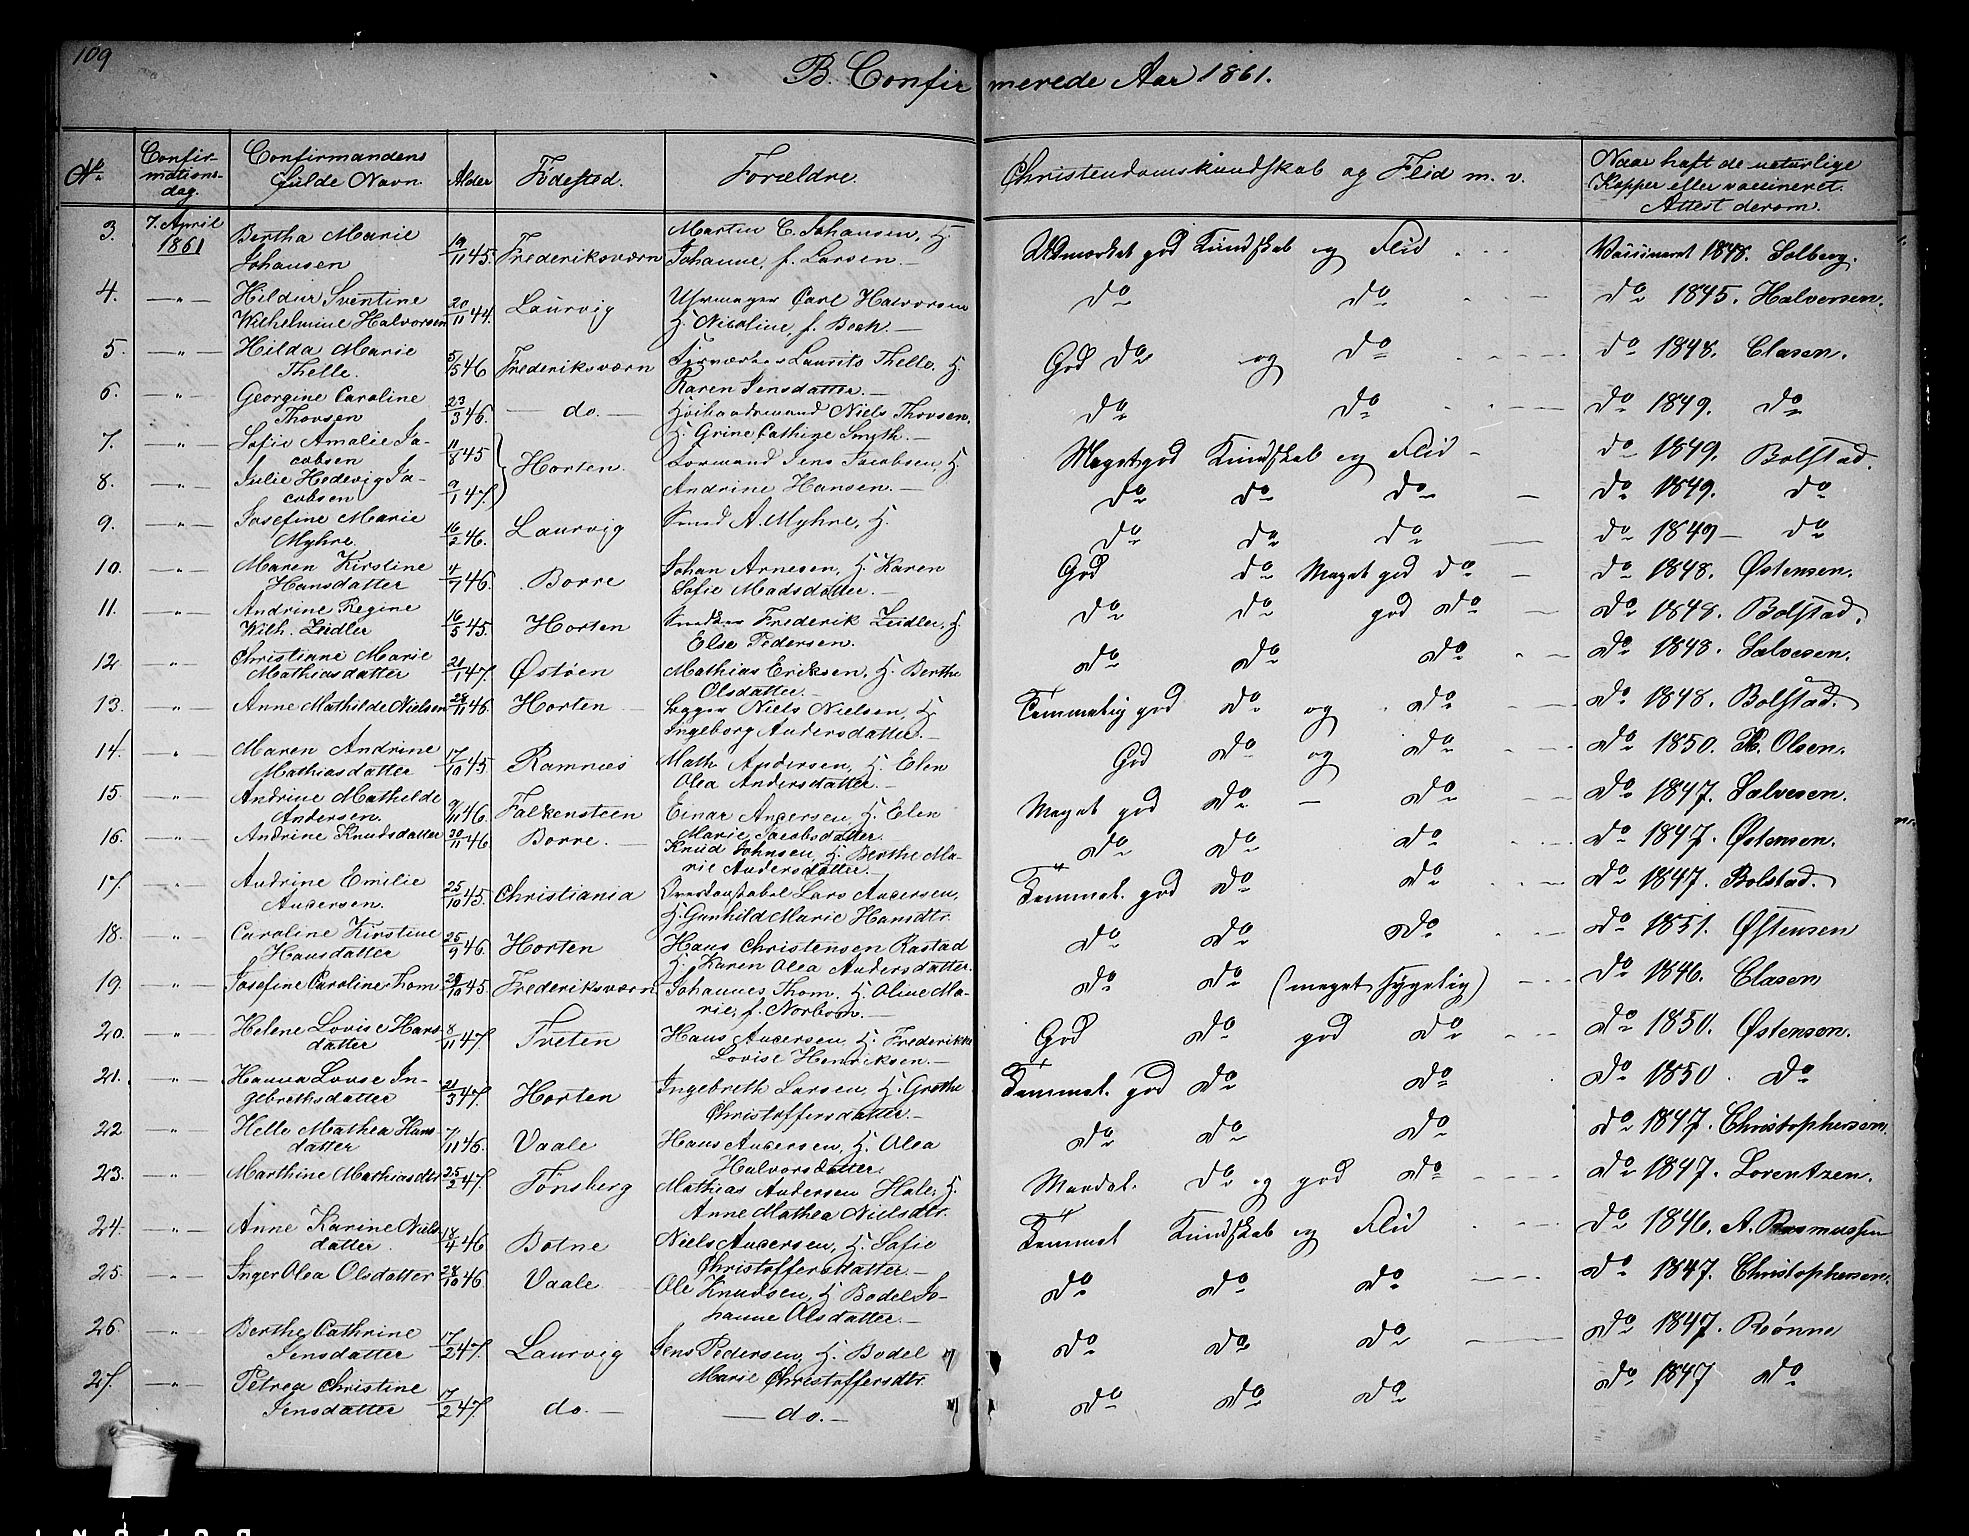 109
B. Confirmerede Aar 1861.
No. Confirmationsdag. Confirmandens fulde Navn. Alder Fødested. Forældre. Christendomskundskab og Flid m. v. Naar haft de naturlige Kopper eller vaccineret. Attest derom.
3. 7. April 1861 Bertha Marie Johansen 19/11 45. Frederiksværn Martin C. Johansen, H. Johanne, f. Larsen.— Udmærket god Kundskab og Flid Vaccineret 1848. Solberg.
4. —"— Hildur Sventine Wilhelmine Halvorsen 20/11 44. Laurvig Uhrmager Carl Halvorsen H. Nicoline, f. Boch.— do do do 1845. Halversen.
5. —"— Hilda Marie Thelle. 5/5 46 Frederiksværn Laurits Thelle, H. Karen Jensdatter.— God do og do do 1848. Clasen.
6. —"— Georgine Caroline Thovsen 23/3 46. — do. — Niels Thovsen, H. Grine Cathine Smyth.— do do do 1849. do
7. —"— Sofie Amalie Jacobsen 11/8 45 Horten. Jens Jacobsen, H. Meget god Kundskab og Flid — do 1849. Bolstad.
8. —"— Julie Hedevig Jacobsen 9/1 47. Andrine Hansen.— do do do — do 1849. do
9. —"— Josefine Marie Myhre. 16/2 46. Laurvig Smed A. Myhre, H. do do do — do 1849— do
10. —"— Maren Kirstine Hansdatter 4/7 46. Borre Johan Arnesen, H. Karen Sofie Madsdatter.— God do Meget god do — do 1848. Østensen.
11. —"— Andrine Regine Wilh. Zeidler 16/5 45. Horten Frederik Zeidler, H. Else Pedersen. do do god do — do 1848. Bolstad.
12. —"— Christinne Marie Mathiasdatter 21/1 47. Østøen Mathias Eriksen, H. Berthe Olsdatter.— do do do do 1848. Salvesen.
13. —"— Anne Mathilde Nielsen 28/11 46. Horten Niels Nielsen, H. Ingeborg Andersdatter.— Temmelig god do og do do 1848. Bolstad.
14. " Maren Andrine Mathiasdatter 17/10 45 Ramnæs Math. Andersen, H. Elen Olea Andersdatter.— God do og do do 1850. H. Olsen.
15. —"— Andrine Mathilde Andersen. 9/11 46. Falkensteen Einar Andersen, H. Elen Marie Jacobsdatter. Meget god do — do do 1847. Salvesen.
16. —"— Andrine Knudsdatter 20/11 46 Borre.— Knud Johnsen, H. Berthe Marie Andersdatter.— do do do do 1847. Østensen.
17. " Andrine Emilie Andersen. 25/10 45. Christiania Lars Andersen, H. Gunhild Marie Hansdtr. Temmel. god do do do 1847. Bolstad.
18. " Caroline Kirstine Hansdatter 25/9 46. Horten Hans Christensen Rastad H. Karen Olea Andersdatter. do do do do 1851. Østensen
19. " Josefine Caroline Thom 29/10 45. Frederiksværn Johannes Thom, H. Oline Marie, f. Norbom.— do do (meget sygelig) do 1846. Clasen
20. " Helene Lovise Hansdatter 8/11 47. Tveten Hans Andersen, H. Frederikke Lovise Henriksen.— God do god do do 1850. Østensen.
21. " Hanna Lovse Ingebrethsdatter 21/3 47. Horten Ingebreth Larsen, H. Grethe Christoffersdatter.— Temmel. god do do do 1850. do
22 " Helle Mathea Hansdatter 7/11 46. Vaale Hans Andersen, H. Olea Halvorsdatter. do do do do 1847. Christophersen.
23. —"— Marthine Mathiasdtr 25/2 47. Tønsberg Mathias Andersen Hale, H. Anne Mathea Nielsdtr. Maadel. do og god do do 1847. Lorentzen.
24. " Anne Karine Nielsdatter. 18/4 46 Botne Niels Andersen, H. Sofie Christoffersdatter.— Temmel Kundskab og Flid do 1846. A. Rasmussen
25. —"— Inger Olea Olsdatter 28/10 46 Vaale Ole Knudsen, H. Bodel Johanne Olsdatter.— do do do do 1847. Christophersen.
26. —"— Berthe Cathrine Jensdatter 17/2 47. Laurvig Jens Pedersen, H. Bodel do do do do 1847. Rønne
27. —"— Petrea Christine Jensdatter 17/2 47. do.— Marie Christoffersdtr. — do.— do do do do 1847 do